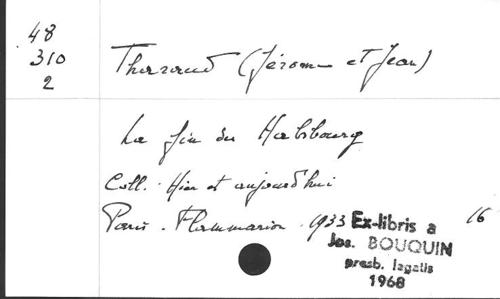 48
310
2
Tharaud (Jérôme et Jean)
La fin des Habsbourg
Coll. Hier et aujourd'hui
Paris. Flammarion. 1933
16
Ex-libris a
Jos. BOUQUIN
presb. legatis
1968